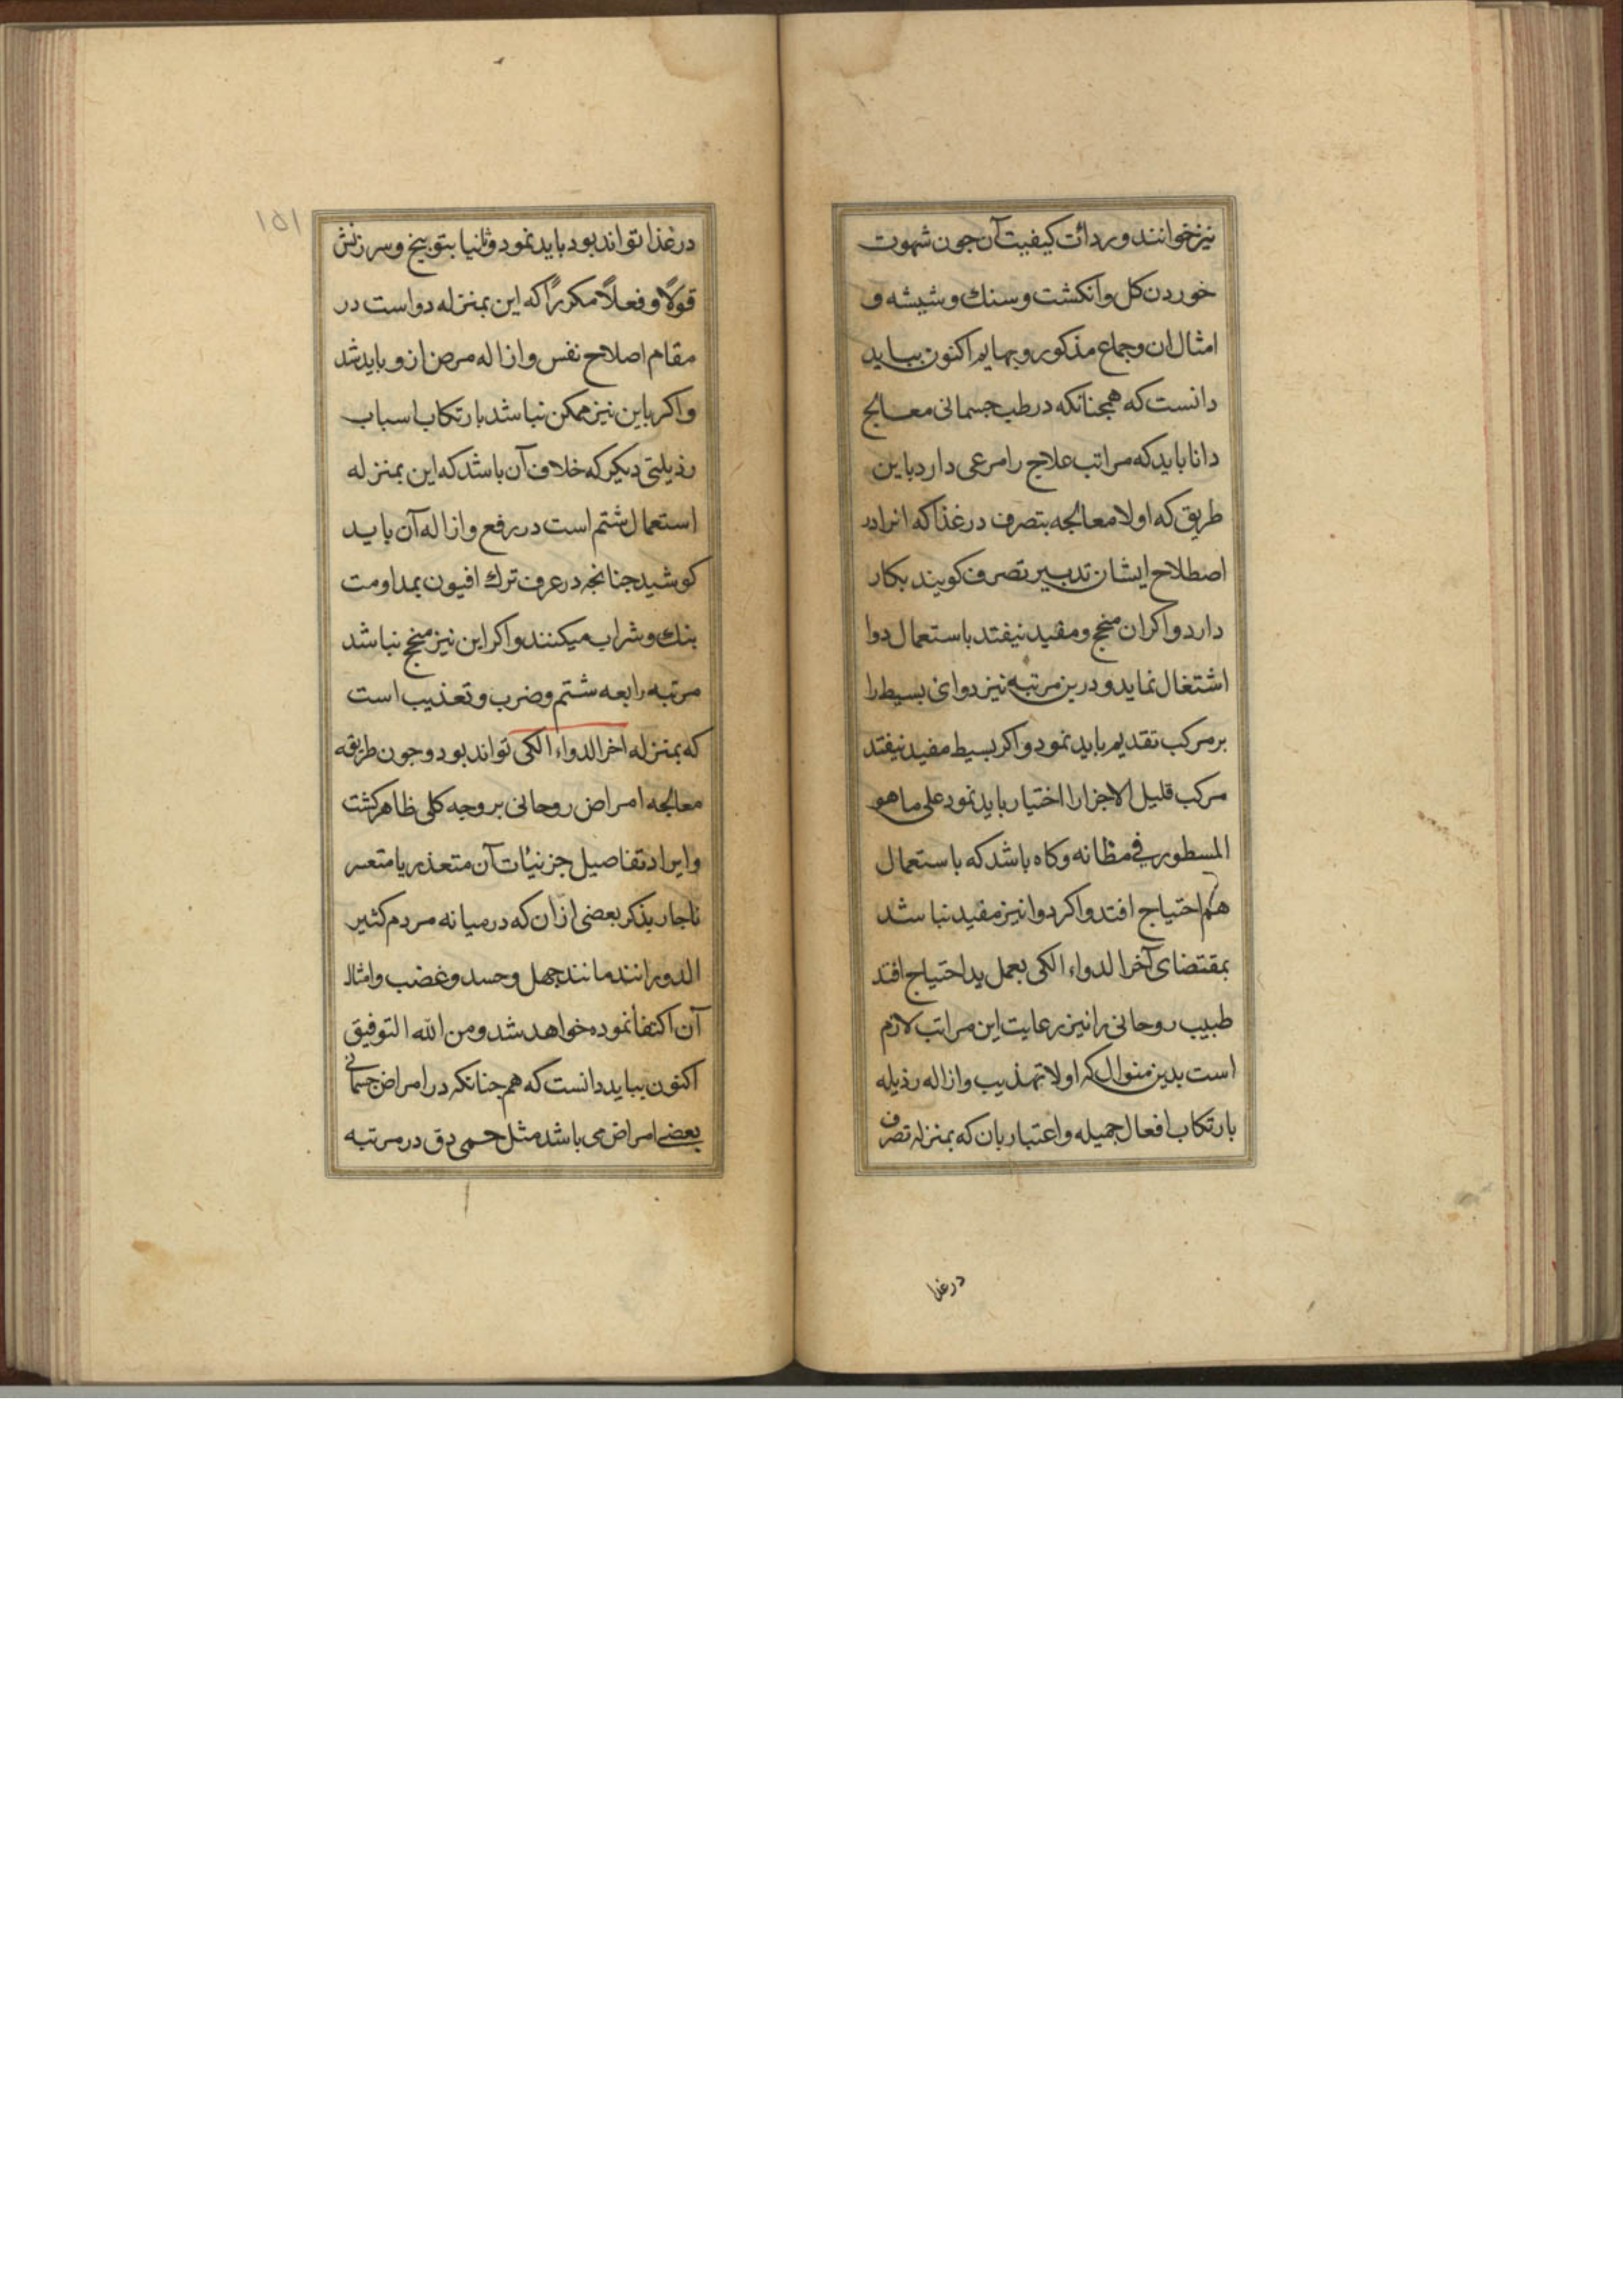 نیز خوانند و ردائت کیفیت آن جون شهوت
خوردن کل و آنکشت و سنك و شیشه و
امثال ان و جماع مذکور و بهایم اکنون بباید
دانست که همجنانکه در طب جسمانی معالج
دانا باید که مراتب علاج را مرعی دارد باین
طریق که اولا معالجه بتصرف در غذا که انرا در
اصطلاح ایشان تدبیر تصرف کویند بکار
دارد و اکر ان منجح و مفید نیفتد باستعمال دوا
اشتغال نماید و درین مرتبه نیز دوای بسیط را
بر مرکب تقدیم باید نمود و اکر بسیط مفید نیفتد
مرکب قلیل الاجزا را اختیار باید نمود علی ما هو
المسطور فی مظانه و کاه باشد که باستعمال
هم احتیاج افتد و اکر دوا نیز مفید نباشد
بمقتضای آخر الدواء الکی بعمل ید احتیاج افتد
طبیب روحانی را نیز رعایت این مراتب لازم
است بدین منوال که اولا تهذیب و ازاله رذیله
بارتکاب افعال جمیله و اعتبار بان که بمنزله تصرف
در غذا
۱۵۱
در غذا تواند بود باید نمود و ثانیا بتوبیخ و سرزنش
قولًا و فعلًا مکررًا که این بمنزله دواست در
مقام اصلاح نفس و ازاله مرض از و باید شد
و اکر باین نیز ممکن نباشد بارتکاب اسباب
رذیلتی دیکر که خلاف آن باشد که این بمنزله
استعمال شتم است در رفع و ازاله آن باید
کوشید جنانجه در عرف ترك افیون بمداومت
بنك و شراب میکنند و اکر این نیز منجح نباشد
مرتبه رابعه شتم و ضرب و تعذیب است
که بمنزله اخر الدواء الکی تواند بود و جون طریقه
معالجه امراض روحانی بر وجه کلی ظاهر کشت
و ایراد تفاصیل جزئیات آن متعذر یا متعسر
ناجار بذکر بعضی از ان که در میانه مردم کثیر
الدورانند مانند جهل و حسد و غضب و امثال
آن اکتفا نموده خواهد شد و من الله التوفیق
اکنون بباید دانست که هم جنانکه در امراض جسمانی
بعضی امراض می باشد مثل حمی دق در مرتبه